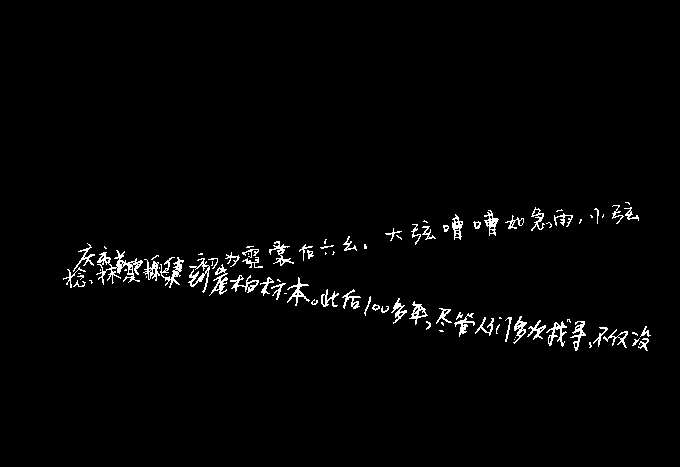 初为霓裳后六幺。大弦嘈嘈如急雨,小弦
集到崖柏标本。此后100多年,尽管人们多次找寻,不仅没